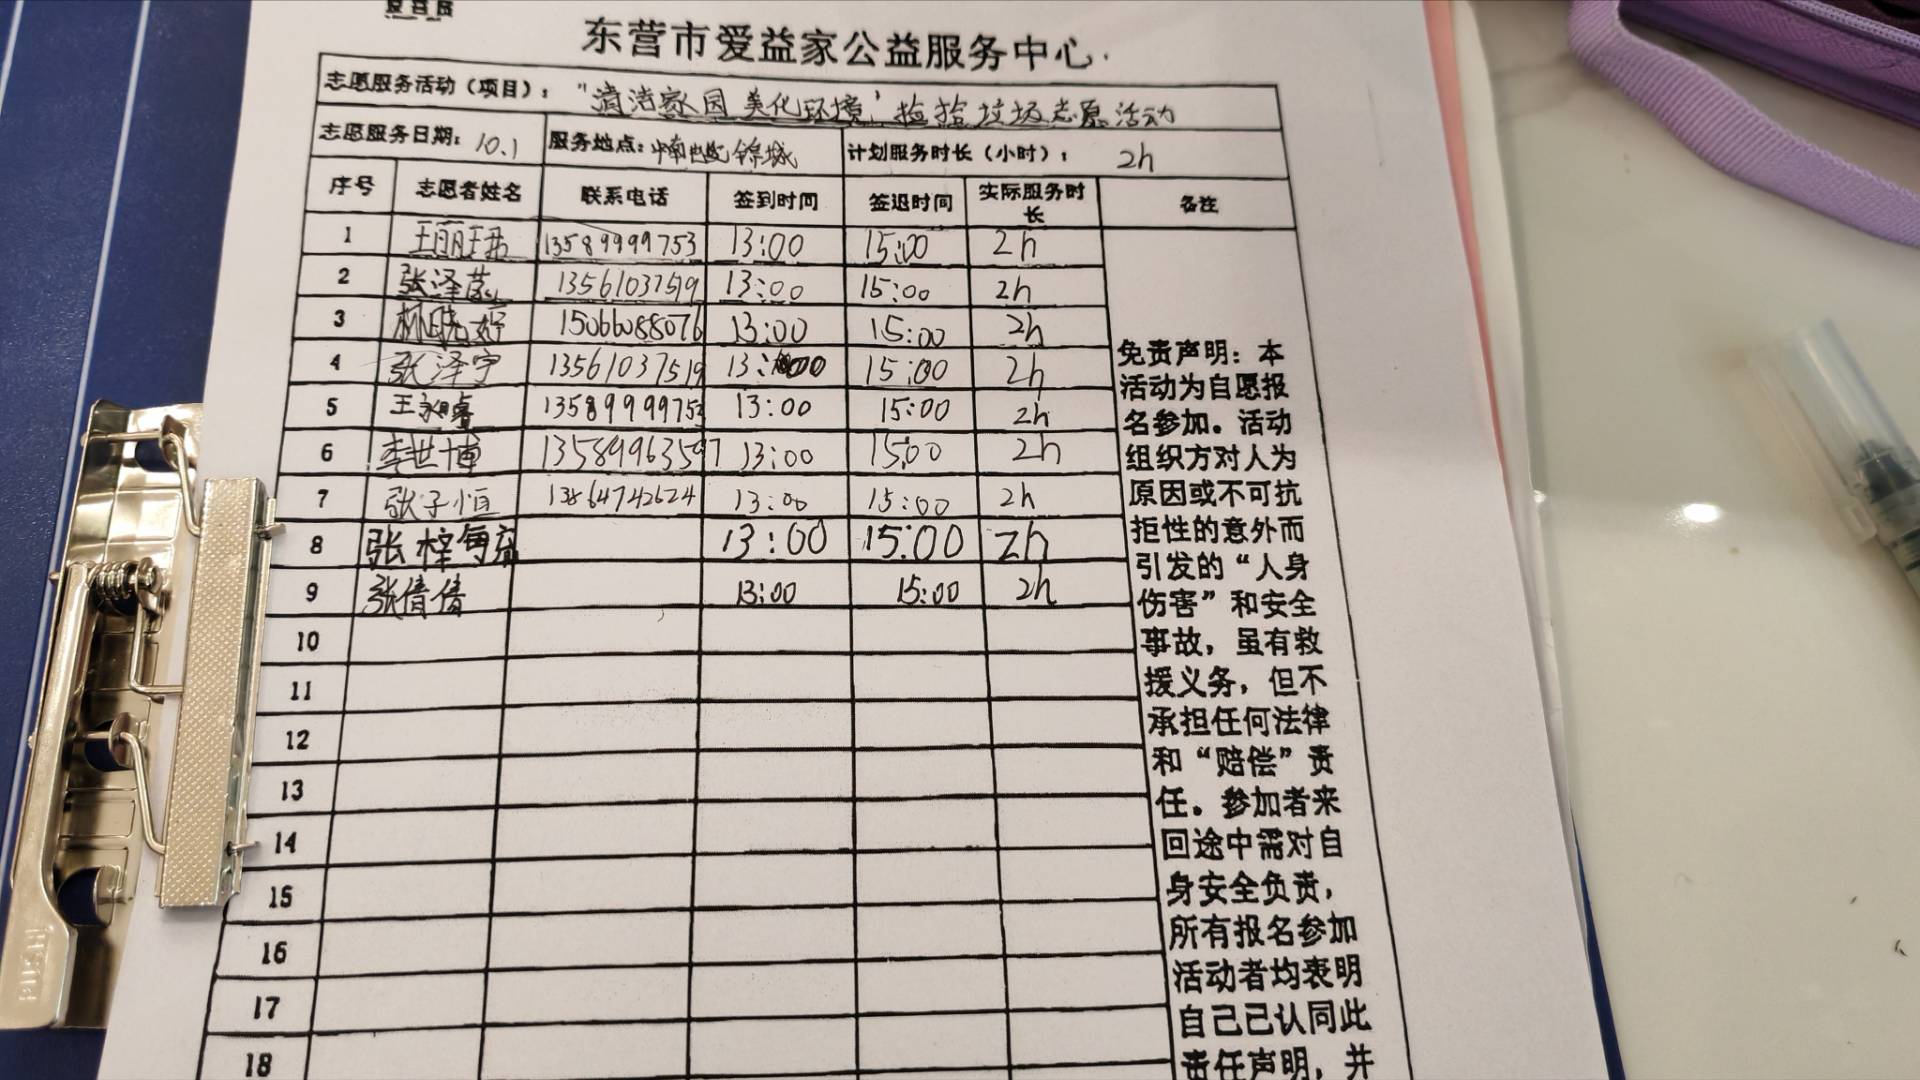 东营市爱益家公益服务中心
志愿服务活动（项目）： “清洁家园 美化环境”捡拾垃圾志愿活动
志愿服务日期： 10.1 服务地点：中南世纪锦城 计划服务时长（小时）： 2h
序号 志愿者姓名 联系电话 签到时间 签退时间 实际服务时长 备注
1 13589999753 13:00 15:00 2h
2 张泽 13561037519 13:00 15:00 2h
3 林晓婷 15066088076 13:00 15:00 2h
4 张泽宇 13561037519 13:00 15:00 2h
5 王 睿 13589999753 13:00 15:00 2h
6 李世博 13589963597 13:00 15:00 2h
7 张子恒 13864742624 13:00 15:00 2h
8 张梓 13:00 15:00 2h
9 张倩倩 13:00 15:00 2h
10
11
12
13
14
15
16
17
18
免责声明：本
活动为自愿报
名参加。活动
组织方对人为
原因或不可抗
拒性的意外而
引发的“人身
伤害”和安全
事故，虽有救
援义务，但不
承担任何法律
和“赔偿”责
任。参加者来
回途中需对自
身安全负责，
所有报名参加
活动者均表明
自己已认同此
责任声明，并